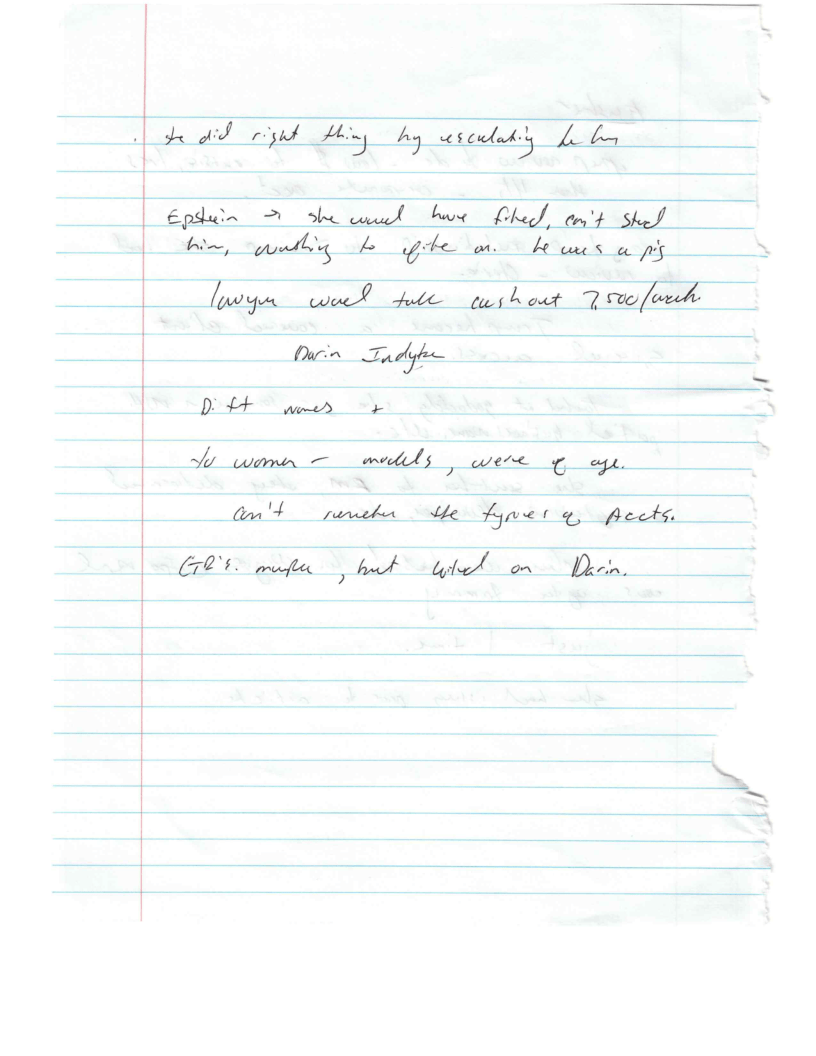 . She did right thing by esculating
Epstein → she would have filed, can't stand
him, on. he was a pig
lawyer would take cash out 7,500/week
Darin Indyke
Diff names +
y/o women - models, were of age.
can't remember the types of Accts.
CTR's. , but filed on Darin.